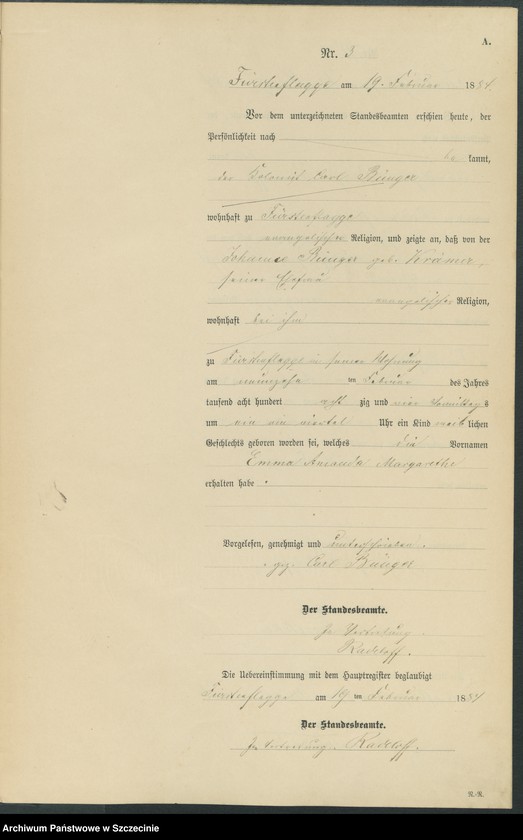 A.
Nr. 3
Fürstenflagge am 19. Februar 1884.
Vor dem unterzeichneten Standesbeamten erschien heute, der
Persönlichkeit nach
be kannt,
der Kolonist Carl Bünger
wohnhaft zu Fürstenflagge
evangelischer Religion, und zeigte an, daß von der
Johanne Bünger geb. Krämer,
seiner Ehefrau
evangelischer Religion,
wohnhaft bei ihm
zu Fürstenflagge in seiner Wohnung
am ten Februar des Jahres
tausend acht hundert acht zig und vier Vormittags
um ein viertel Uhr ein Kind weib lichen
Geschlechts geboren worden sei, welches die Vornamen
Emma Amanda Margarethe
erhalten habe.
Vorgelesen, genehmigt und unterschrieben.
gez. Carl Bünger
Der Standesbeamte.
In Vertretung.
Radeloff.
Die Uebereinstimmung mit dem Hauptregister beglaubigt
Fürstenflagge am 19 ten Februar 1884
Der Standesbeamte.
In Vertretung. Radeloff.
N.-R.
Archiwum Państwowe w Szczecinie